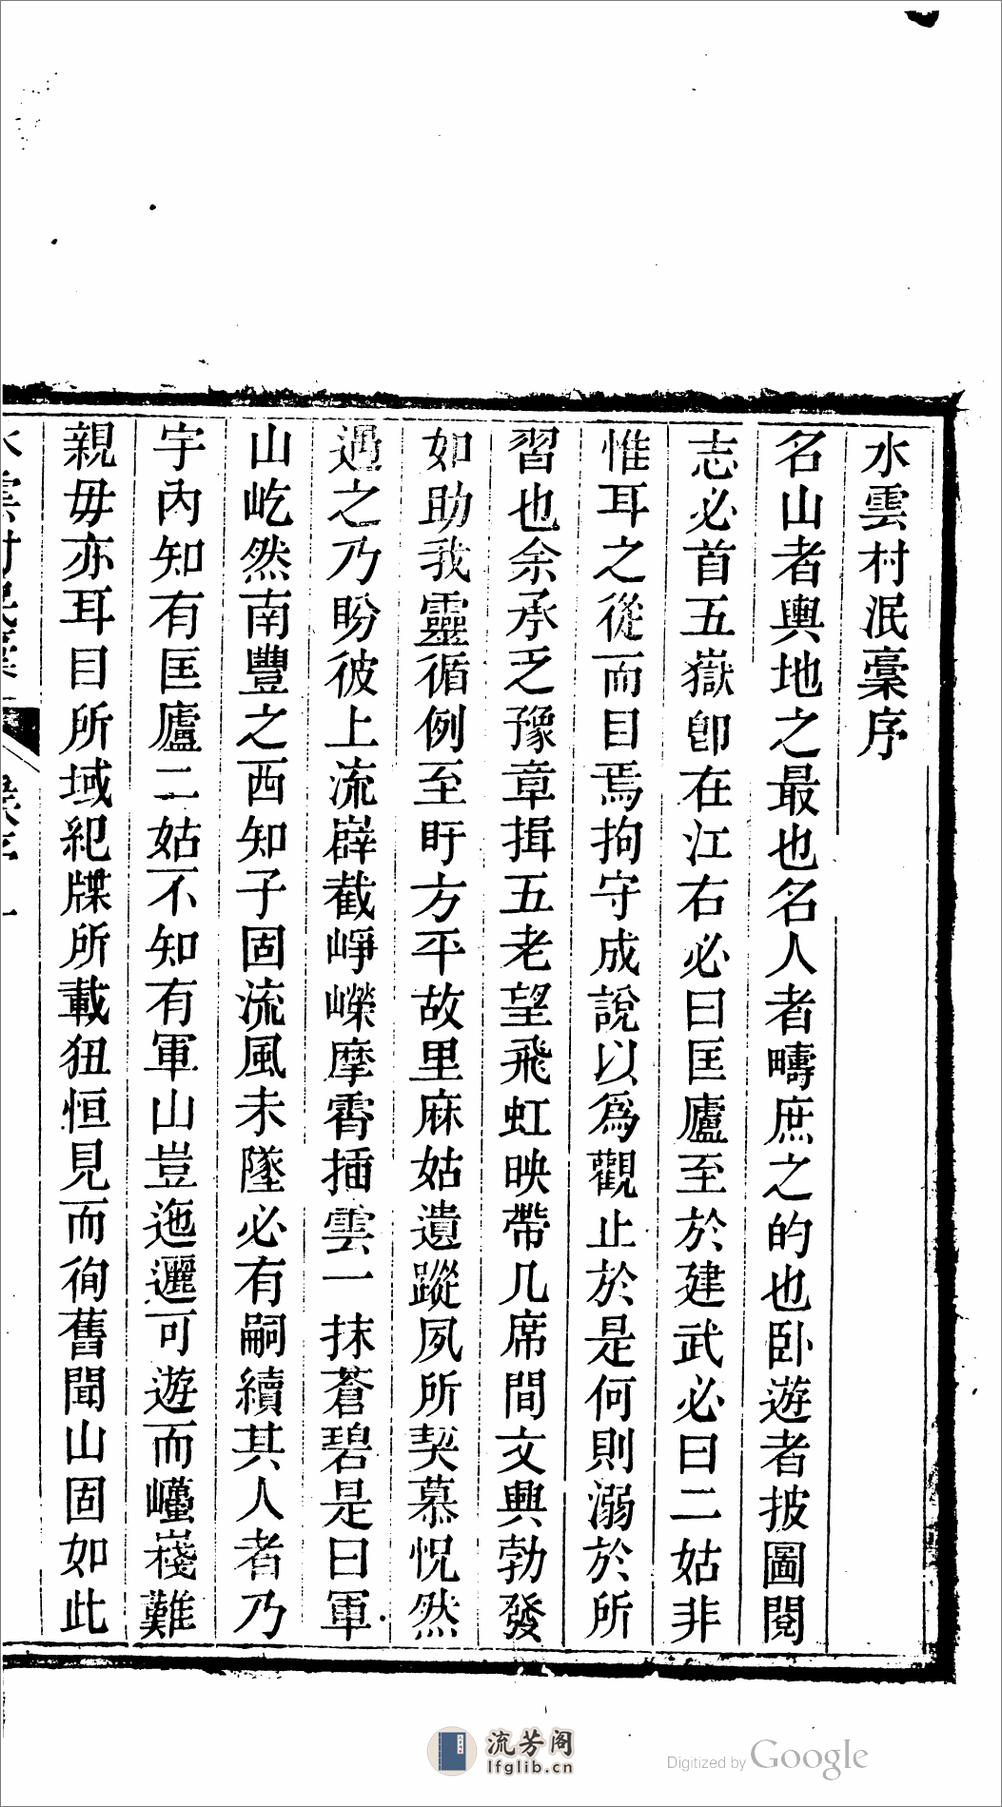 水雲村泯稾序
名山者輿地之最也名人者疇庶之的也卧遊者披圖閱
志必首五嶽卽在江右必曰匡廬至於建武必曰二姑非
惟耳之從而目焉拘守成說以爲觀止於是何則溺於所
習也余承乏豫章揖五老望飛虹映帶几席間文興勃發
如助我靈循例至盱方平故里麻姑遺蹤夙所契慕怳然
遇之乃盼彼上流嶭嶻崢嶸摩霄插雲一抹蒼碧是曰軍
山屹然南豐之西知子固流風未墜必有嗣續其人者乃
宇內知有匡廬二姑不知有軍山豈迤邐可遊而巉嶘難
親毋亦耳目所域紀牒所載狃恒見而徇舊聞山固如此
水雲村泯稾
流芳阁
lfglib.cn
Digitized by Google